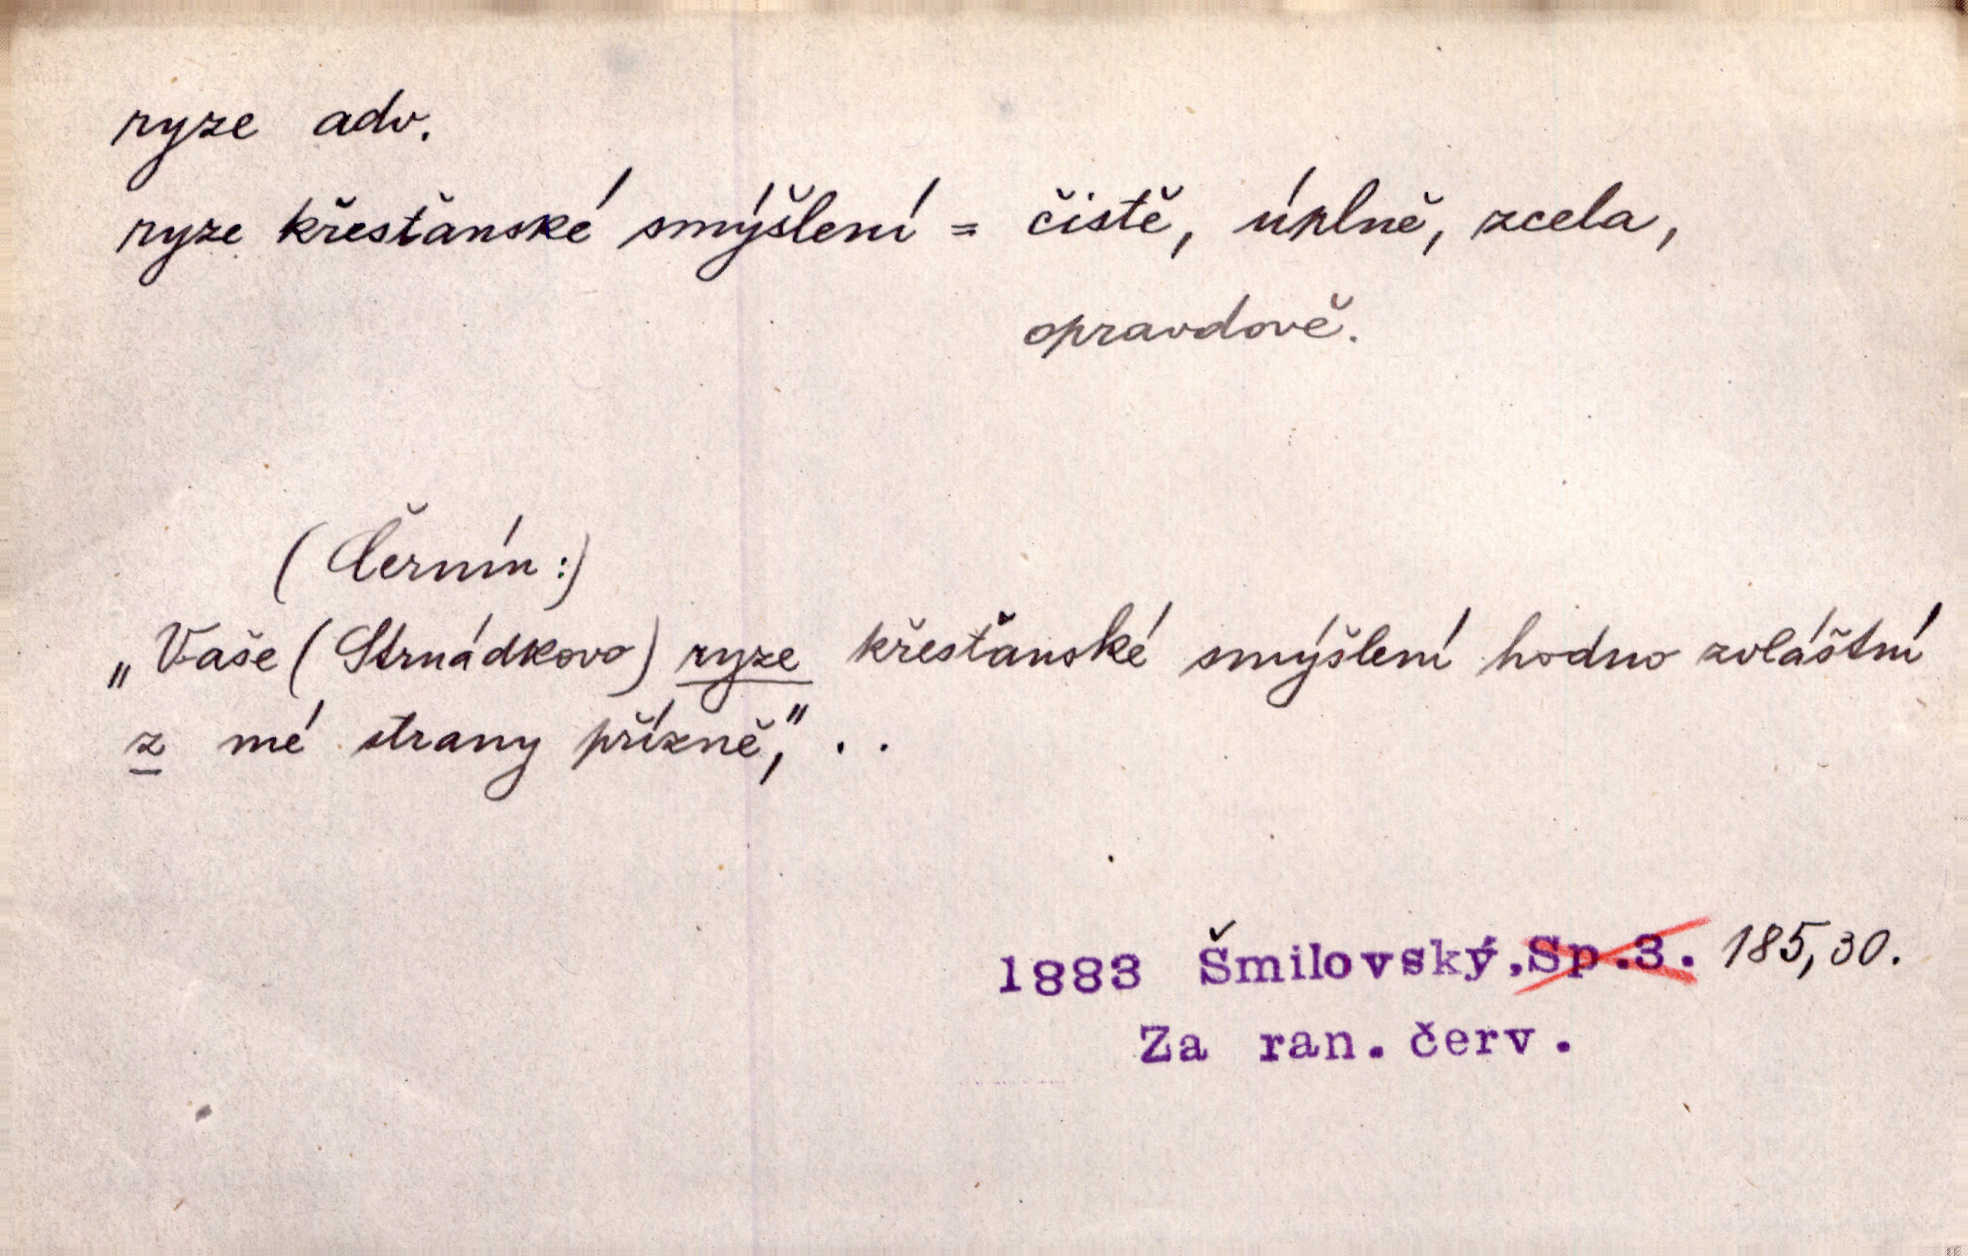 ryze adv.
ryze křesťanské smýšlení = čistě, úplně, zcela,
opravdově.
(Černín:)
„Vaše (Strnádkovo) ryze křesťanské smýšlení hodno zvláštní
z mé strany přízně," . .
1883 Šmilovský, Sp.3. 185,30.
Za ran. červ.